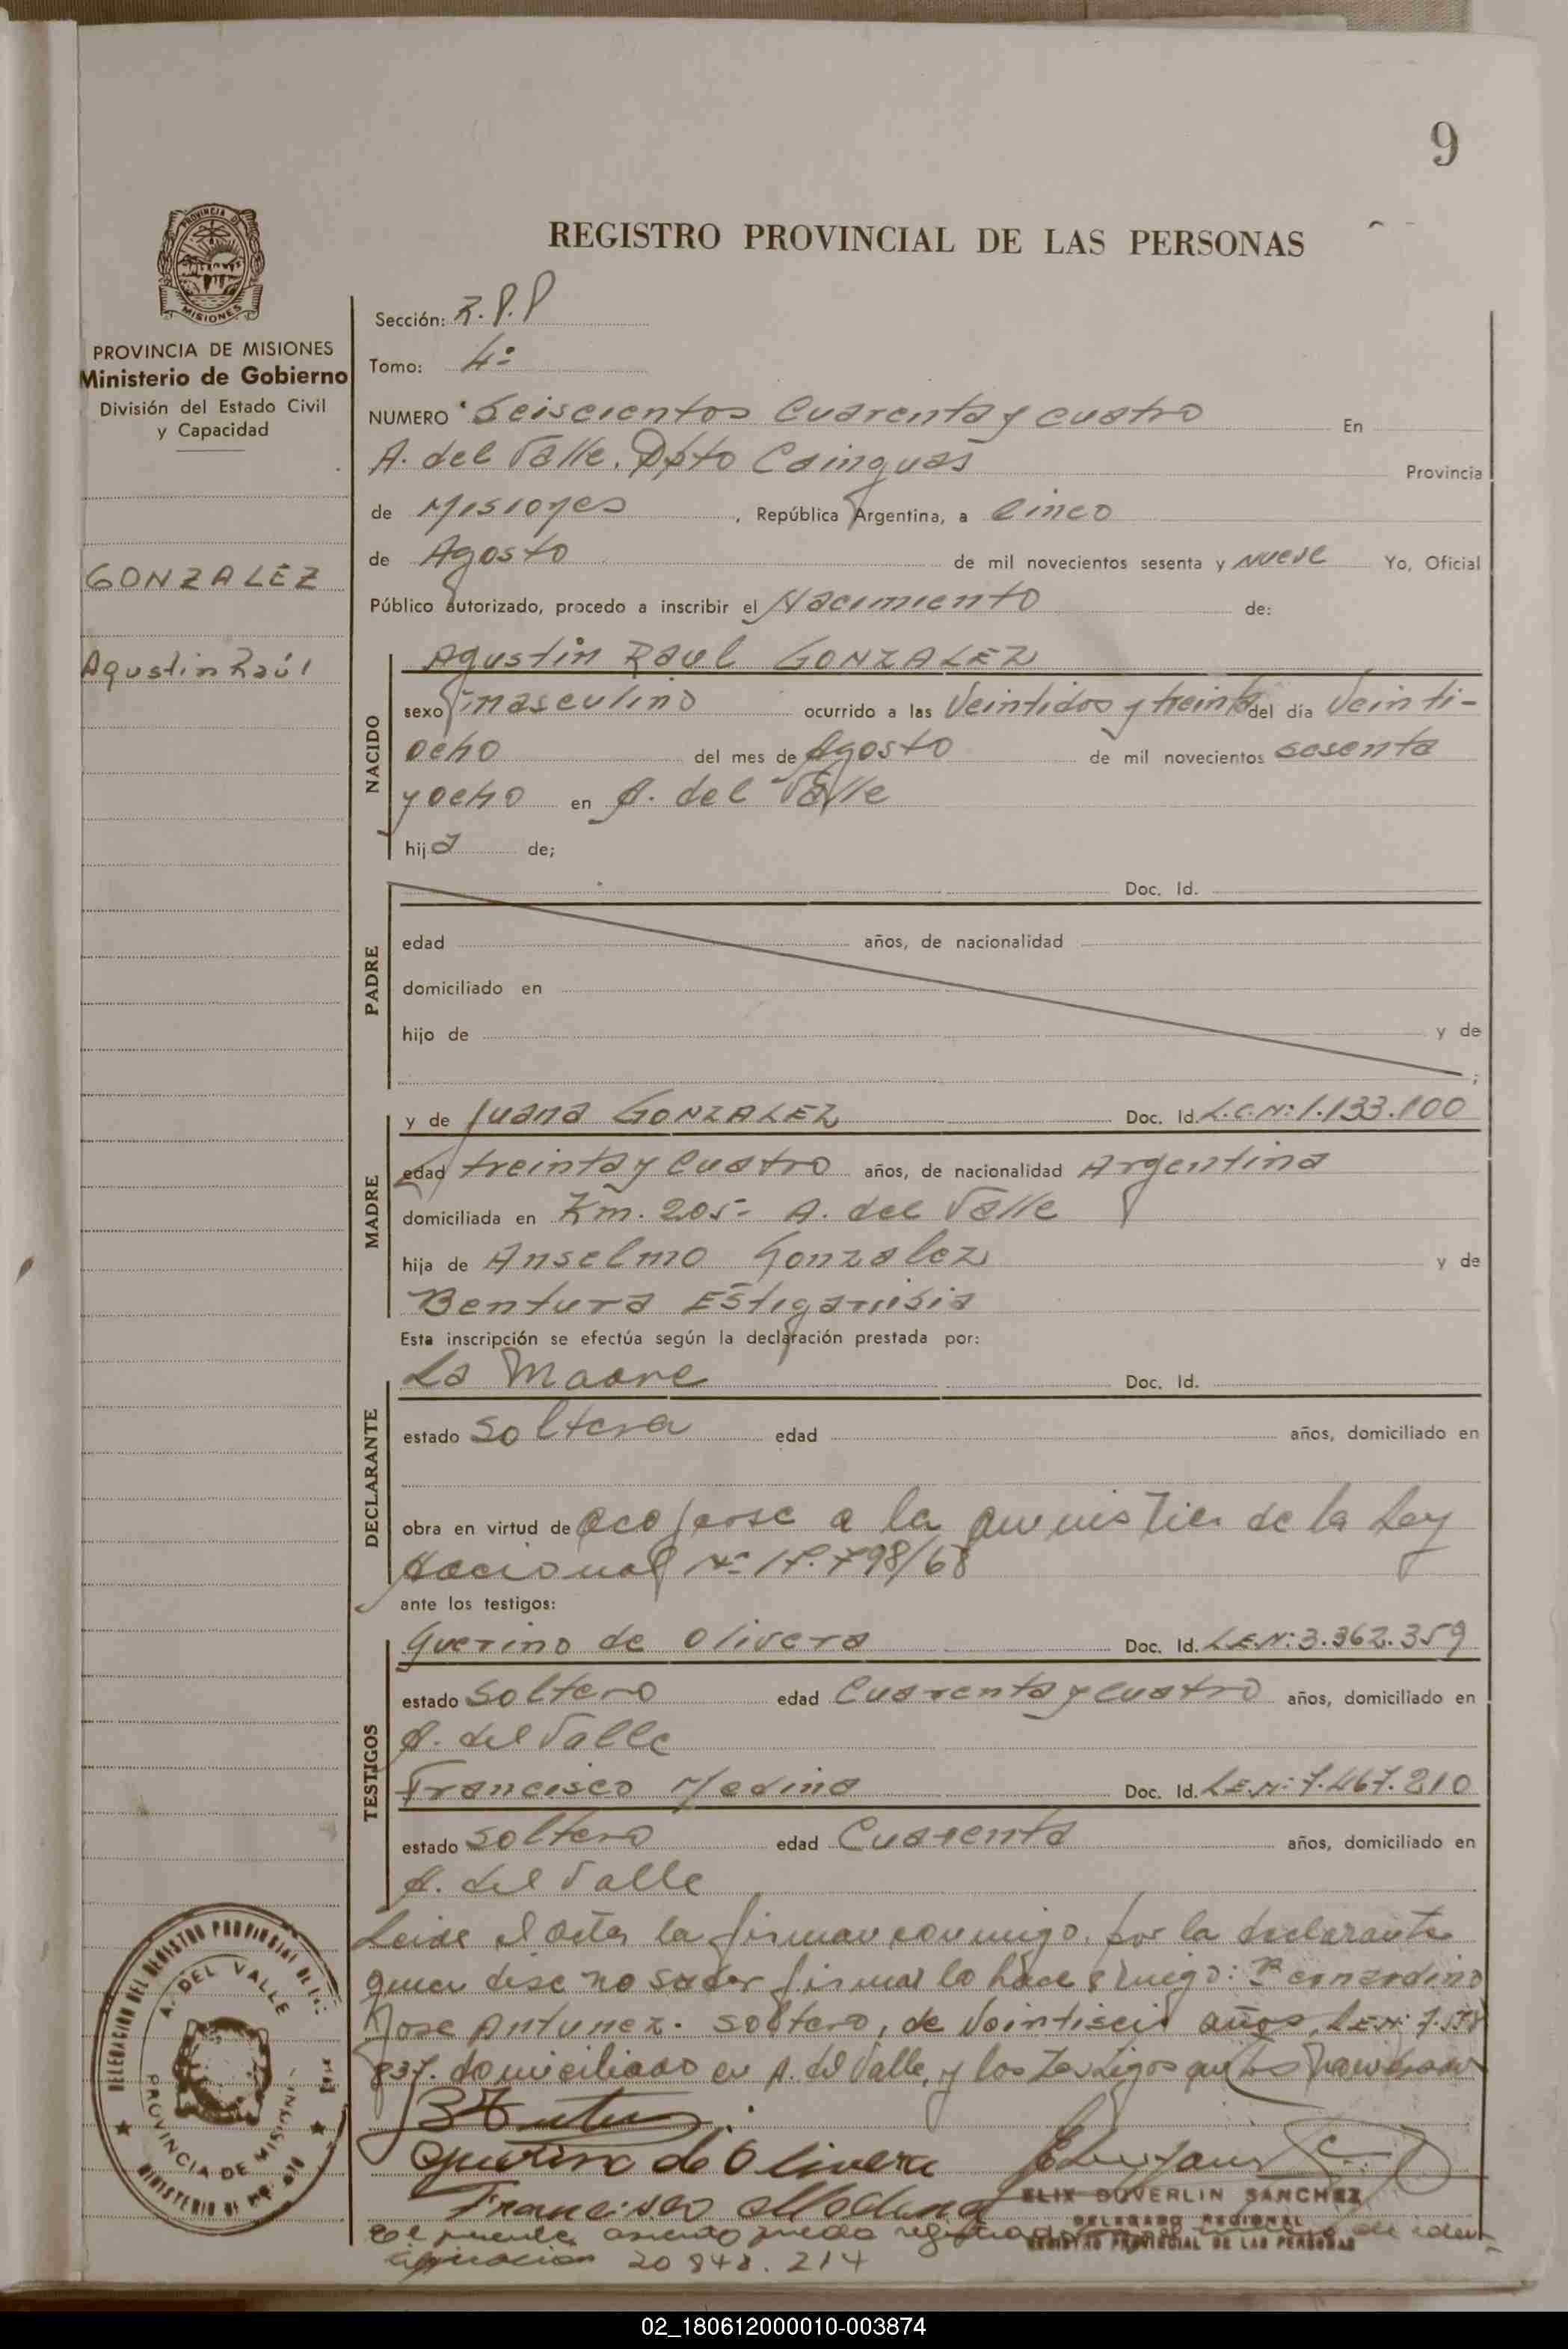 9
REGISTRO PROVINCIAL DE LAS PERSONAS
PROVINCIA DE MISIONES
Ministerio de Gobierno
División del Estado Civil
y Capacidad
GONZALEZ
Agustin Raúl
Sección: R.P.P
Tomo: 4º
NUMERO Seiscientos Cuarenta y cuatro En
A. del Valle. Dpto Cainguas Provincia
de Misiones, República Argentina, a Cinco
de Agosto de mil novecientos sesenta y nueve Yo, Oficial
Público autorizado, procedo a inscribir el Nacimiento de:
NACIDO
Agustin Raul GONZALEZ
sexo masculino ocurrido a las Veintidos y treinta del día Veinti-
ocho del mes de Agosto de mil novecientos sesenta
y ocho en A. del Valle
hija de;
PADRE
Doc. Id.
edad años, de nacionalidad
domiciliado en
hijo de y de
;
MADRE
y de Juana GONZALEZ Doc. Id. L.C.Nº 1.133.100
edad treinta y Cuatro años, de nacionalidad Argentina
domiciliada en Km. 205- A. del Valle
hija de Anselmo Gonzalez y de
Bentura Estigarribia
Esta inscripción se efectúa según la declaración prestada por:
DECLARANTE
La Madre Doc. Id.
estado Soltera edad años, domiciliado en
obra en virtud de acojerse a la amnistia de la Ley
Nacional Nº 17.798/68
ante los testigos:
TESTIGOS
Guerino de Olivera Doc. Id. L.E.Nº 3.362.359
estado Soltero edad Cuarenta y cuatro años, domiciliado en
A. del Valle
Francisco Medina Doc. Id. L.E.Nº 7.467.210
estado Soltero edad Cuarenta años, domiciliado en
A. del Valle
Leida el acta la firman conmigo, por la declarante
quien dise no saber firmar lo hace a ruego: Bernardino
Jose Antunez. Soltero, de Veintiseis años, L.E.Nº
837. domiciliado en A. del Valle, y los testigos
Guerino de Olivera
Francisco Medina
ELIX DUVERLIN SANCHEZ
DELEGADO REGIONAL
REGISTRO PROVINCIAL DE LAS PERSONAS
presente asiento queda de iden-
20 848.214
DELEGACION DEL REGISTRO PROVINCIAL DE
A. DEL VALLE
PROVINCIA DE MISIONES
MINISTERIO DE
02_180612000010-003874